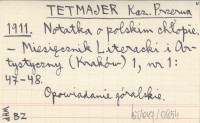 TETMAJER Kaz. Przerwa
1911. Notatka o polskim chłopie.
- Miesięcznik Literacki i Ar-
tystyczny (Kraków) 1, nr 1:
47-48.
Opowiadanie góralskie.
BZ